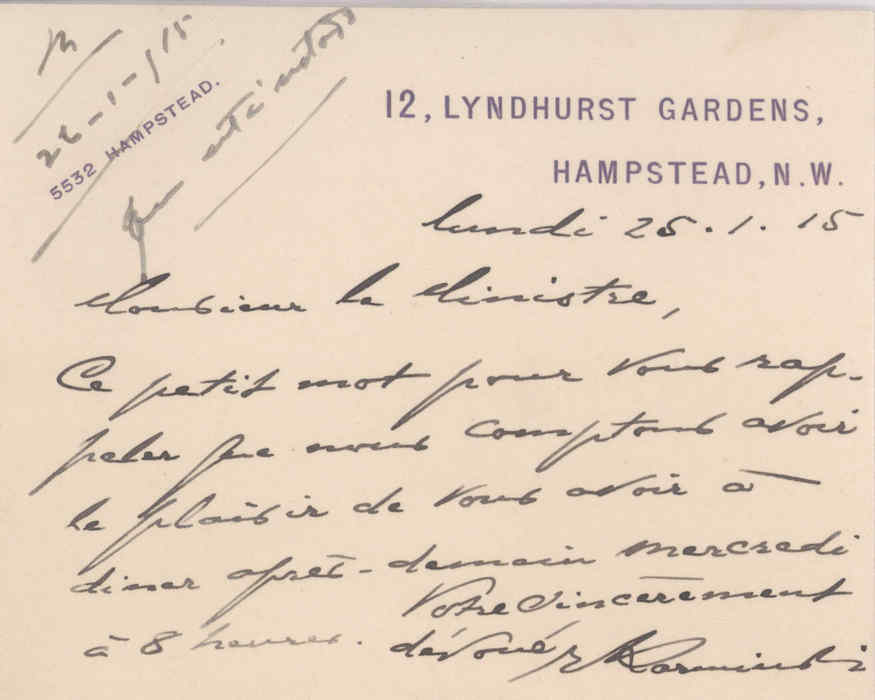 R
26-1-15
5532 HAMPSTEAD.
Que
12, LYNDHURST GARDENS,
HAMPSTEAD, N.W.
lundi 25.1.15
Monsieur le Ministre,
Ce petit mot pour vous rap-
peler que nous comptons avoir
le plaisir de vous avoir à
diner après-demain mercredi
à 8 heures.
Votre sincèrement
dévoué